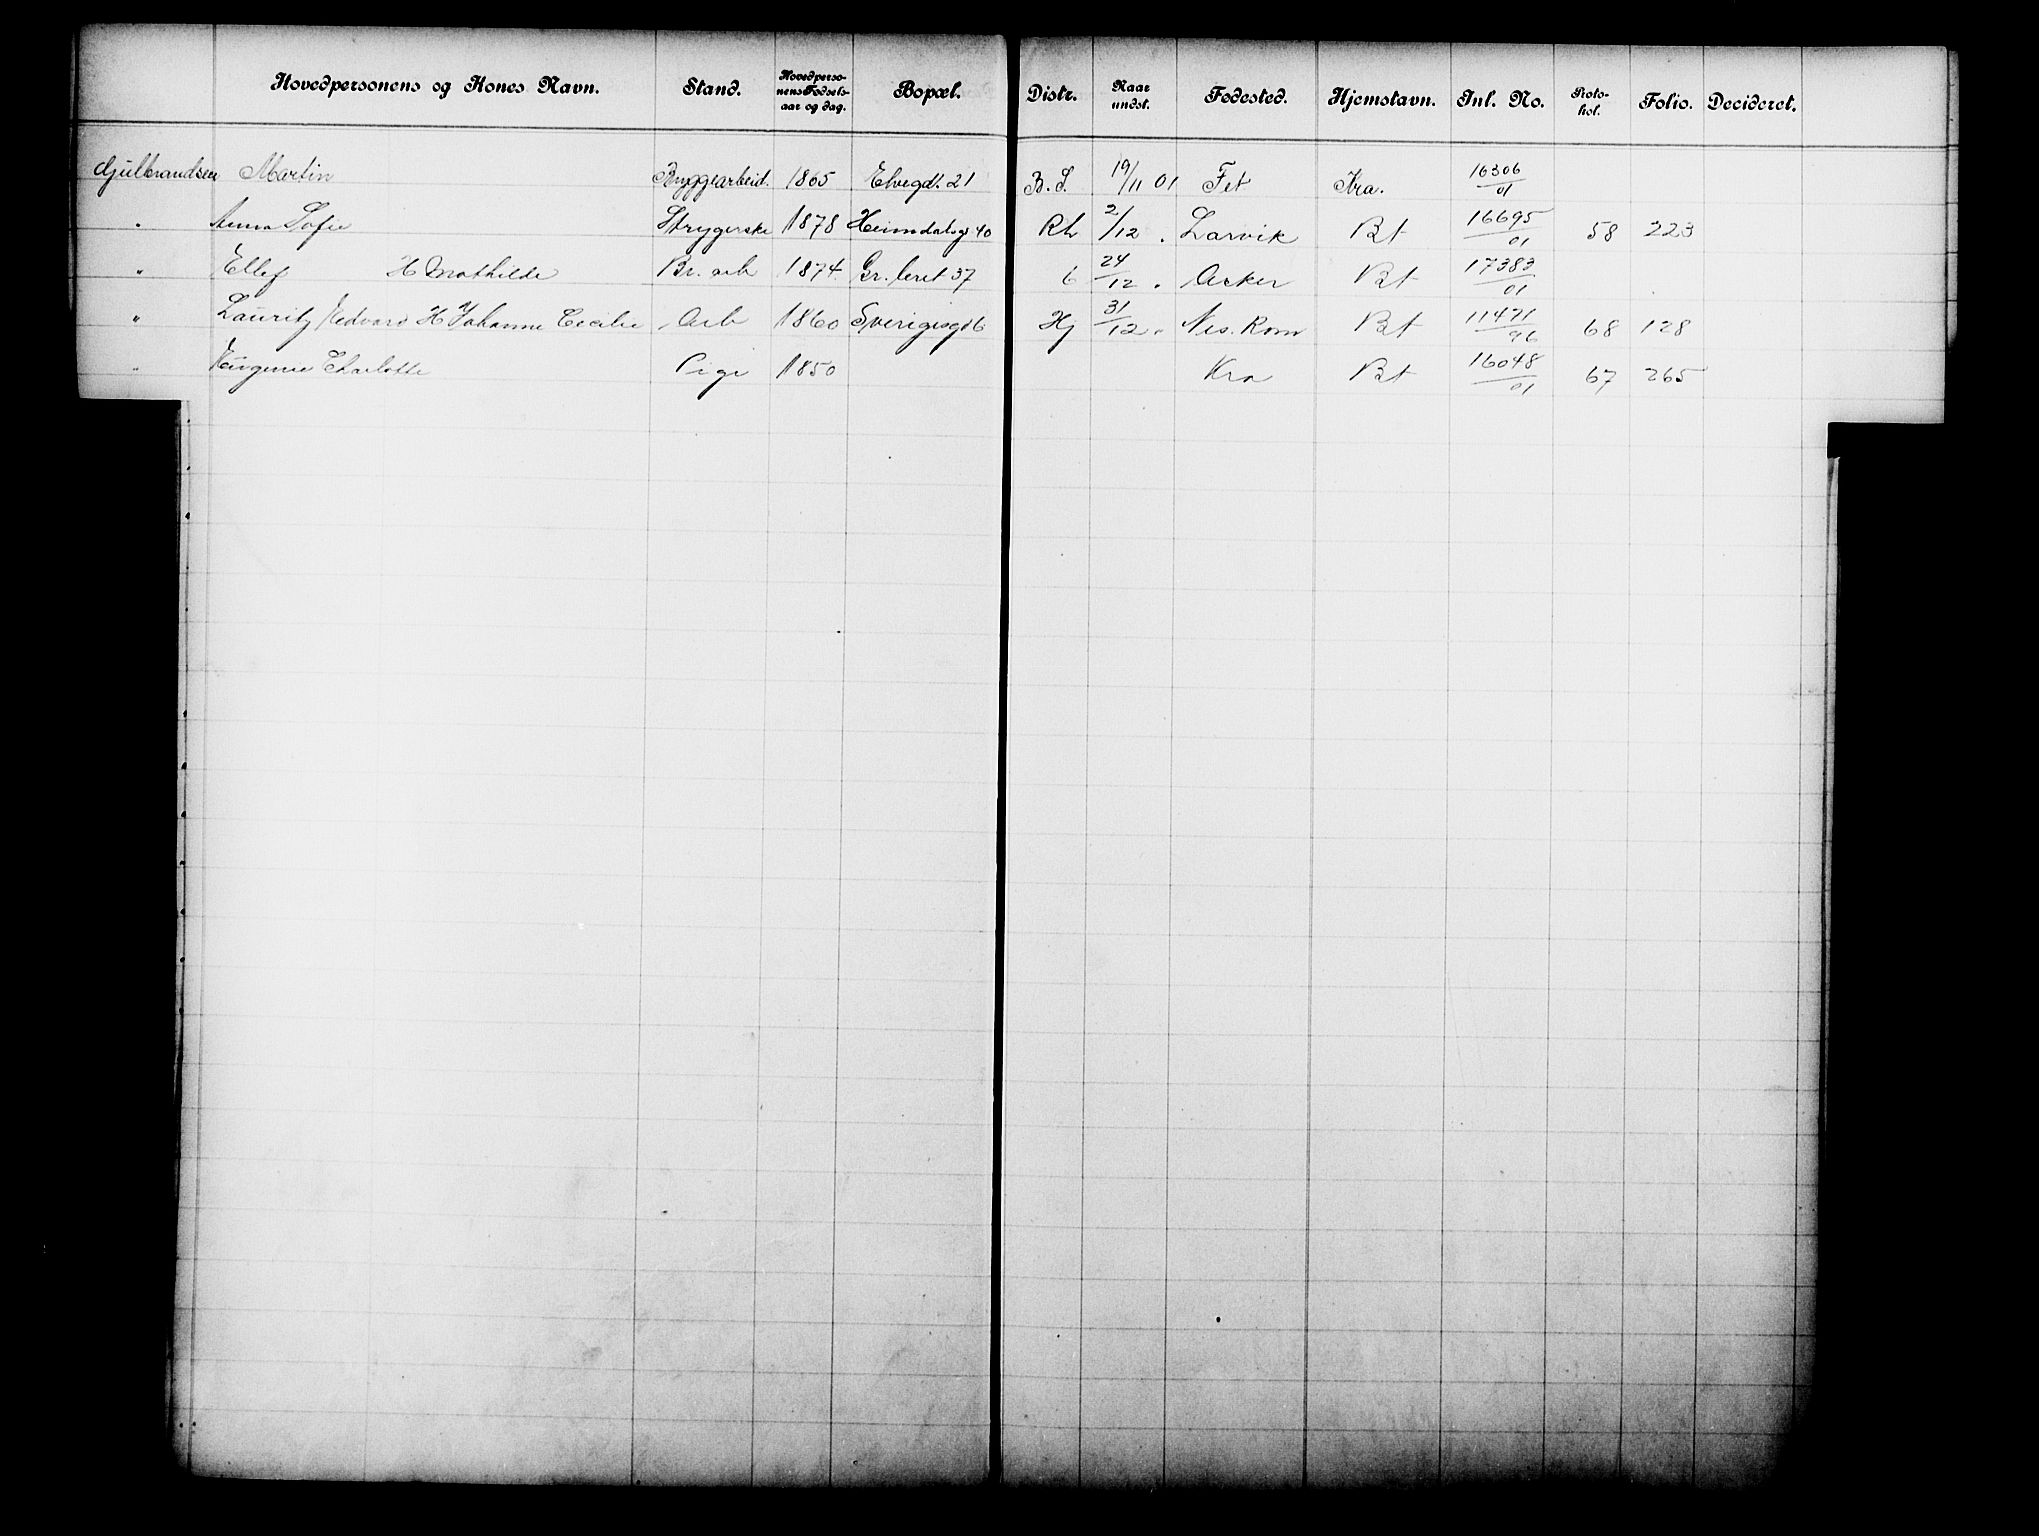 Hovedpersonens og Kones Navn. Stand. Hovedpersonens Fødselsaar og dag. Bopæl. Distr. Naar undst. Fødested. Hjemstavn. Inl. No. Protokol. Folio. Decideret.
Gulbrandsen Martin Bryggearbeid. 1865 Elvegdt. 21 B. S. 19/11 01 Fet Kra. 16306/01
" Anna Sofie Strygerske 1878 Heimdalsg 40 Rh 2/12 " Larvik Bt 16695/01 58 223
" Ellef H Mathilde Br. arb 1874 Gr. leret 37 6 24/12 " Aker Bt 17383/01
" Lauritz Edvard H Johanne Cecilie Arb 1860 Sverigesgd 6 Hj 31/12 " Nes. Rom Bt 11471/96 68 128
" Eugenie Charlotte Pige 1850 Kra Bt 16048/01 67 265